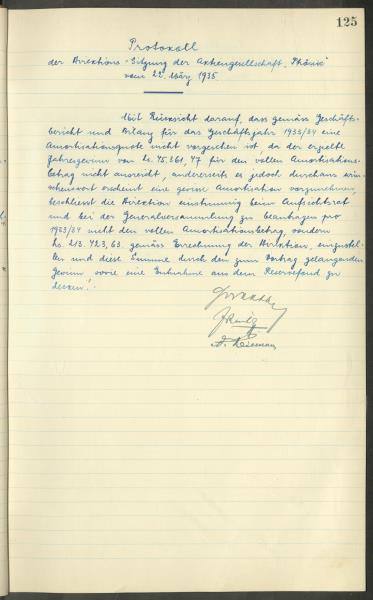 125
Protokoll
der Direktions-Sitzung der Aktiengesellschaft "Phönix"
vom 22. März 1935
Mit Rücksicht darauf, dass gemäss Geschäfts-
bericht und Bilanz für das Geschäftsjahr 1933/34 eine
Amortisationsquote nicht vorgesehen ist, da der erzielte
Jahresgewinn von Ls. 45.361,47 für den vollen Amortisations-
betrag nicht ausreicht, andererseits es jedoch durchaus wün-
schenswert erscheint eine gewisse Amortisation vorzunehmen,
beschliesst die Direktion einstimmig beim Aufsichtsrat
und bei der Generalversammlung zu beantragen pro
1933/34 nicht den vollen Amortisationsbetrag, sondern
Ls. 423,63 gemäss Errechnung der Direktion, einzustel-
len und diese Summe durch den zum Vortrag gelangenden
Gewinn, sowie eine Entnahme aus dem Reservefond zu
decken.